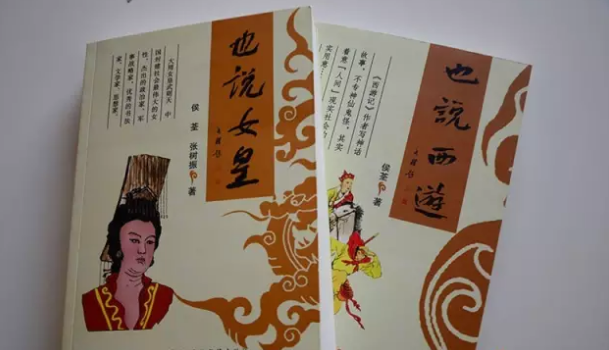 也説女皇
大周女皇武则天 中
国封建社会最伟大的女
性、杰出的政治家、军
事战略家、优秀的书法
家、文学家、思想家。
侯 荃 张树振 著
也説西遊
《西游记》作者写神话
故事，不专神仙鬼怪，其实
着意“人间”现实社会
侯荃 著